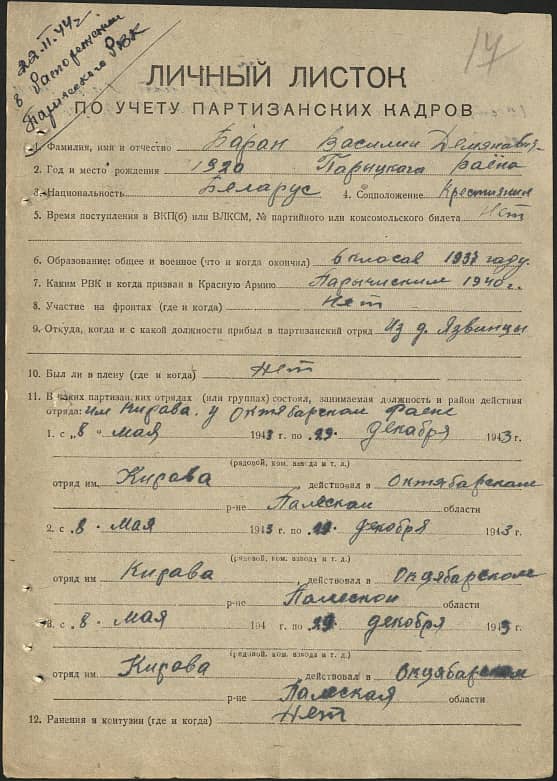 22.II.44г
17
в Распоряжении
Паричского РВК
ЛИЧНЫЙ ЛИСТОК
ПО УЧЕТУ ПАРТИЗАНСКИХ КАДРОВ
1. Фамилия, имя и отчество Баран Василий Демянавич
2. Год и место рождения 1920 Парыцкага раёна
3. Национальность Беларус 4. Соцположение Крестиянин
5. Время поступления в ВКП(б) или ВЛКСМ, № партийного или комсомольского билета Нет
6. Образование: общее и военное (что и когда окончил) 6 класав 1937 году.
7. Каким РВК и когда призван в Красную Армию Парычиским 1940 г.
8. Участие на фронтах (где и когда) Нет
9. Откуда, когда и с какой должности прибыл в партизанский отряд Из д. Язвинцы
10. Был ли в плену (где и когда) Нет
11. В каких партизан.ких отрядах (или группах) состоял, занимаемая должность и район действия
отряда: им Кирава. у Октябарском раене
1. с „8 " мая 1943 г. по „29. декабря 1943 г.
(рядовой, ком. взвода и т. д.)
отряд им. Кирава, действовал в Октябарском
р-не Палеской области
2. с „8. мая 1943 г. по „29. декабря 1943 г.
(рядовой, ком. взвода и т. д.)
отряд им. Кирава, действовал в Октябарском
р-не Палеской области
3. с „8. мая 194 г. по „29. декабря 1943 г.
(рядовой, ком. взвода и т. д.)
отряд им. Кирава действовал в Октябарском
р-не Палеская области
12. Ранения и контузии (где и когда) Нет